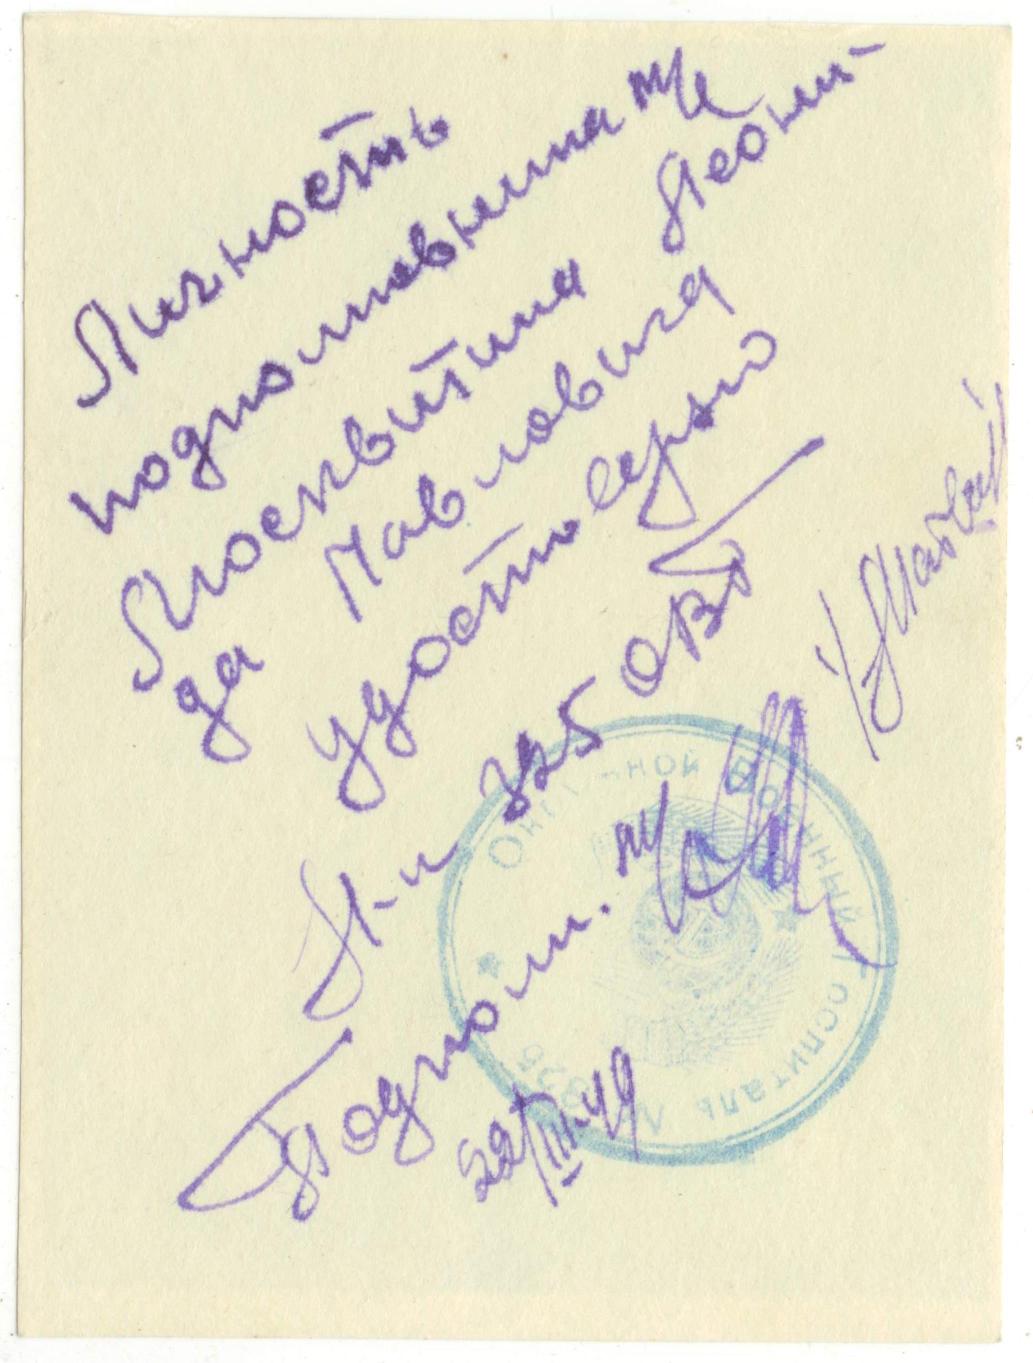 Личность
подполковника м/с
Москвитина Леони-
да Павловича
удостоверяю
Н-к 325 ОВГ
Подполк. м/с
22/III-49
Окружной Военный Госпиталь № 325